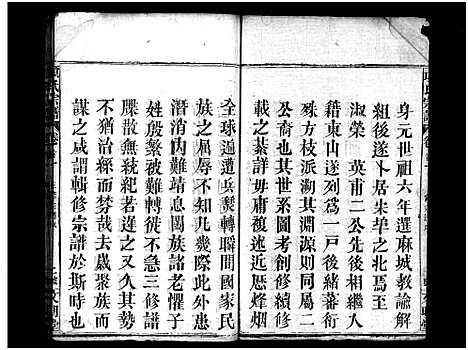 身元世祖六年選麻城教諭解
組後遂卜居朱埠之北焉至
淑榮 英甫二公先後相繼入
籍東山遂列爲一戶後緒蕃衍
殊方枝派溯其淵源則同屬二
公裔也其世系圖考創修續修
載之詳甚毋庸複述慝烽烟
全球遍遭兵鬏轉瞬間國家民
族之屈辱不知凡幾際此外患
潛消內難靖息闔族諸老懼子
姓殷繁被難轉徙一念三修譜
牒散無統紀若遲之又久難免
不猶治絲而棼哉去歲聚族而
謀之咸謂輯修宗譜於斯時也